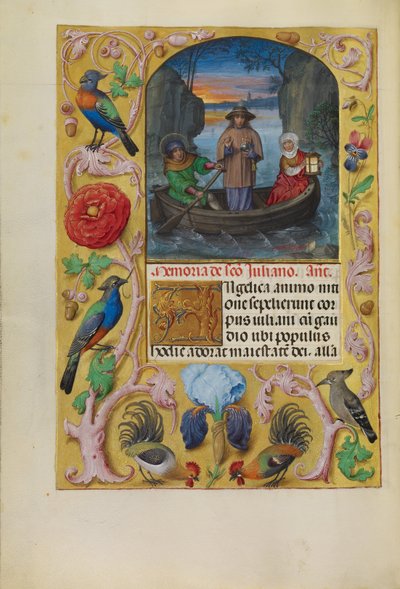 Memoria de sc̄o Iuliano. Añ.
ANgelica animo niti
one sepelierunt cor
pus iuliani cū gau
dio ubi populus
hodie adorat maiestatē dei. alla